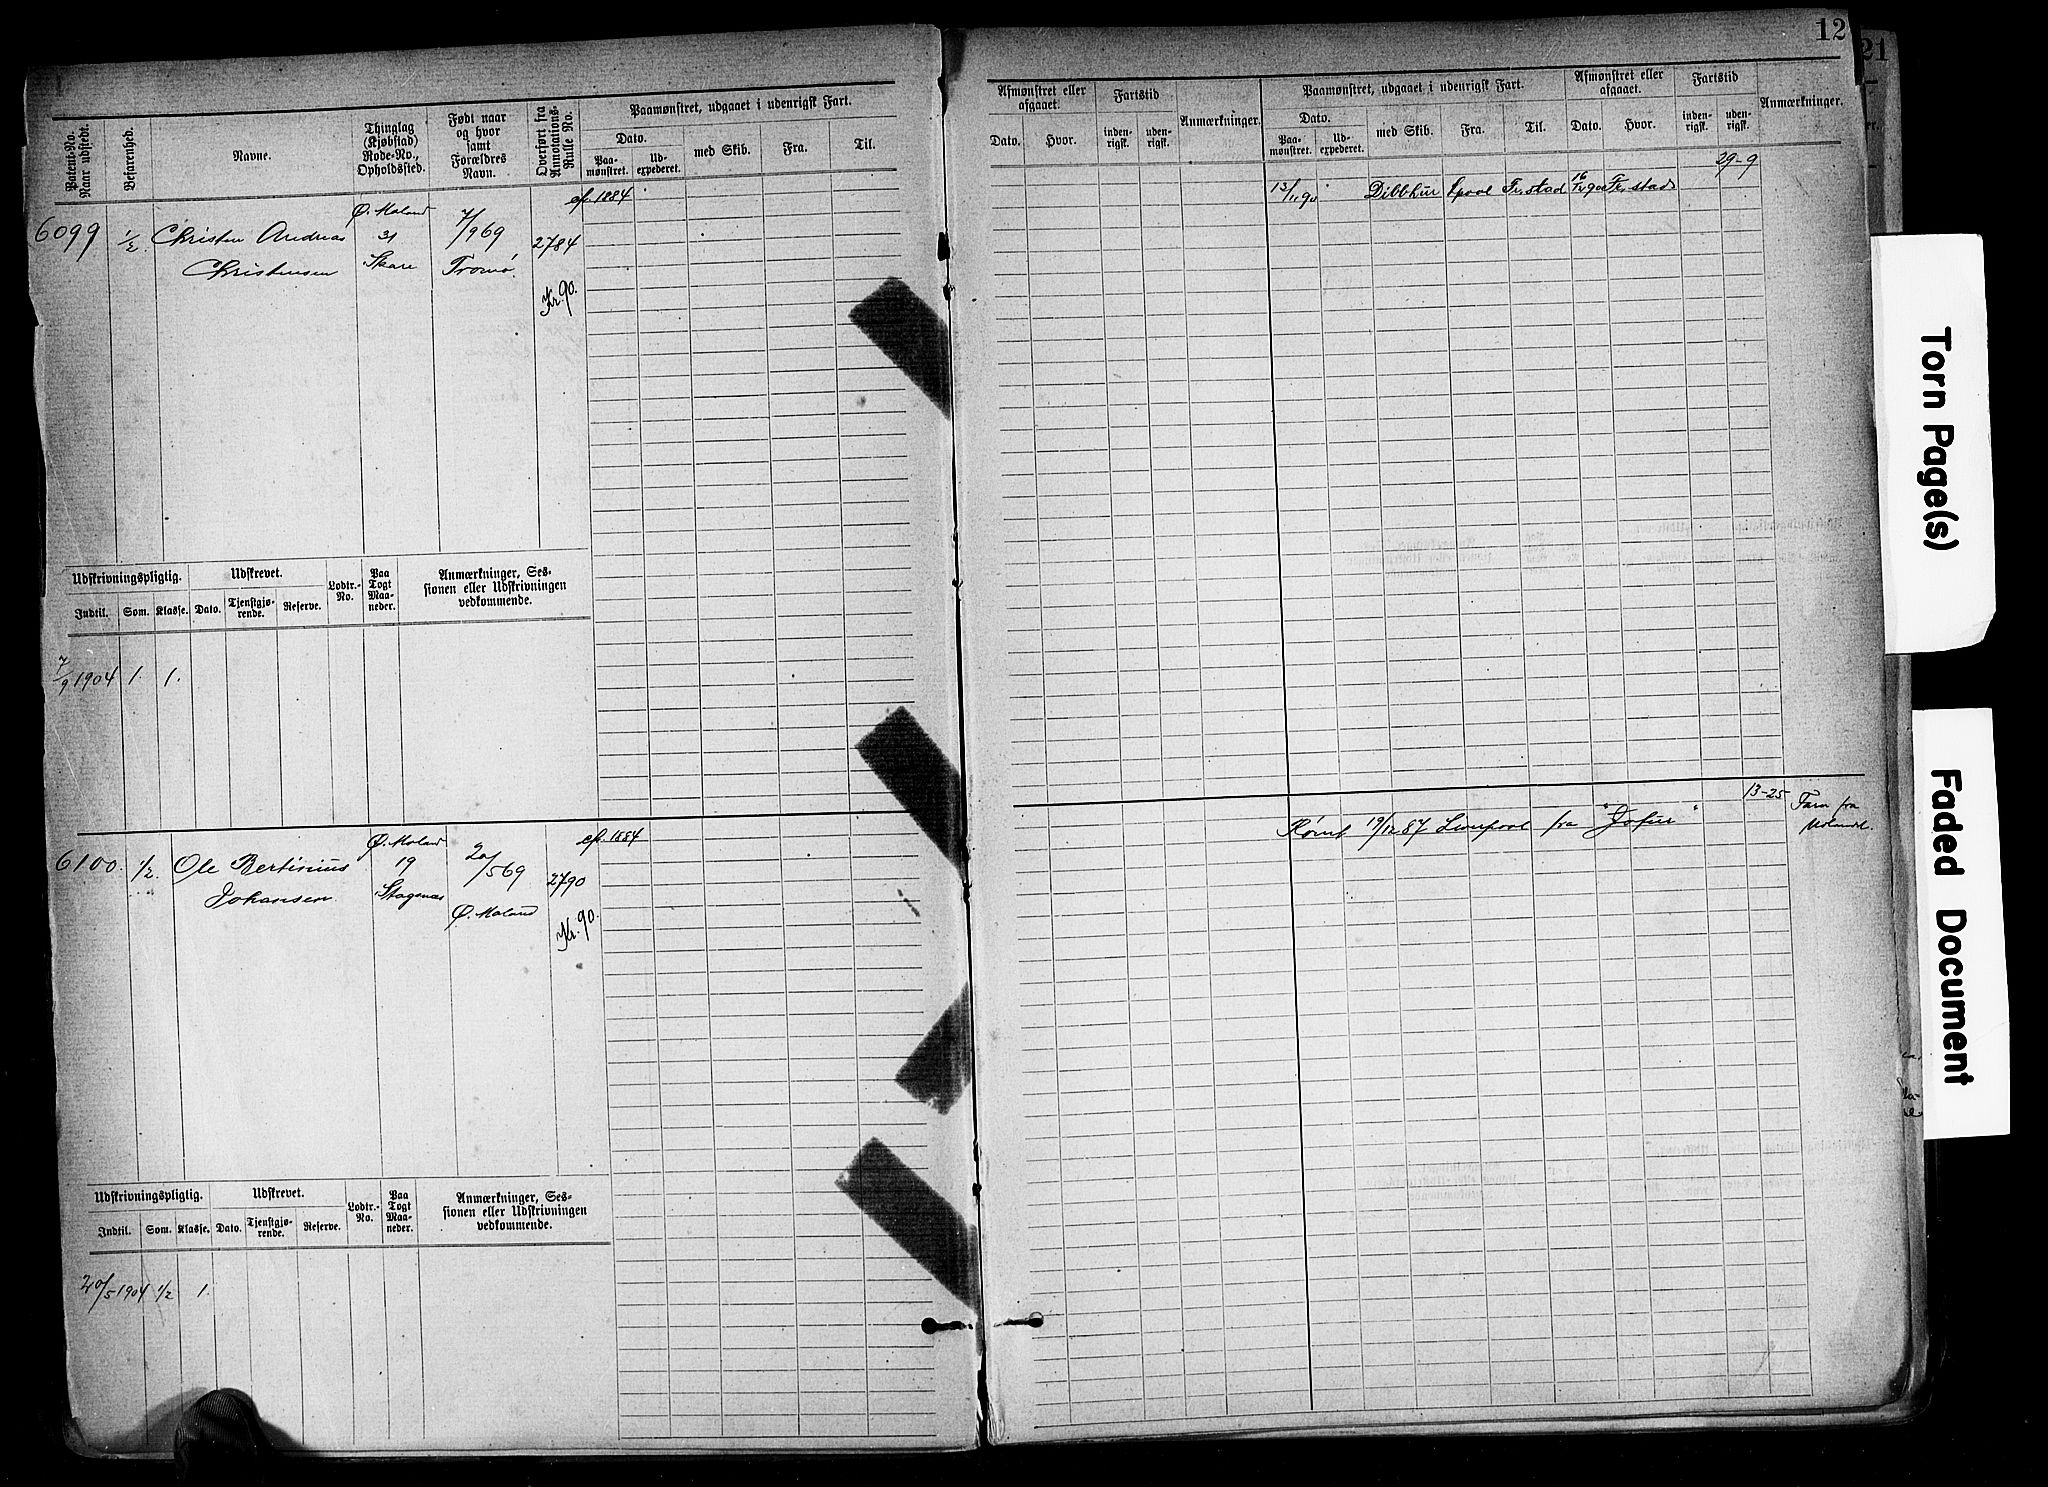 12
21
Patent-No. Naar udstedt.
Befarenhed.
Navne.
Thinglag (Kjøbstad) Rode-No., Opholdssted.
Født naar og hvor samt Forældres Navn.
Overført fra Annotations-Rulle No.
Paamønstret, udgaaet i udenrigsk Fart.
Dato.
Paa-mønstret.
Ud-expederet.
med Skib.
Fra.
Til.
Afmønstret eller afgaaet.
Dato.
Hvor.
Fartstid
inden-rigsk.
uden-rigsk.
Anmærkninger.
Paamønstret, udgaaet i udenrigsk Fart.
Dato.
Paa-mønstret.
Ud-expederet.
med Skib.
Fra.
Til.
Afmønstret eller afgaaet.
Dato.
Hvor.
Fartstid
inden-rigsk.
uden-rigsk.
Anmærkninger.
29-9
cfr. 1884
6099 1/2 Christen Andreas
Christensen
Ø. Moland
31
Skare
7/9 69
Tromø.
2784
Kr. 90.
13/11 90
Lpool Fr.stad
Fr.stad
Udskrivningspligtig.
Udskrevet.
Lodtr.-No.
Paa Togt Maa-neder.
Anmærkninger, Ses-
sionen eller Udskrivningen
vedkommende.
Indtil. Som. Klasse. Dato. Tjenstgjø-rende. Reserve.
7/9 1904 1. 1.
6100. 1/2 Ole Bertinius
Johansen.
Ø. Moland
19
Stagenæs
20/5 69
Ø. Moland
2790
Kr. 90.
cfr. 1884
Rømt 19/12 87 Liverpool fra "Jofur"
13-25
Udskrivningspligtig.
Udskrevet.
Lodtr.-No.
Paa Togt Maa-neder.
Anmærkninger, Ses-
sionen eller Udskrivningen
vedkommende.
Indtil. Som. Klasse. Dato. Tjenstgjø-rende. Reserve.
20/5 1904 1/2 1
Torn Page(s)
Faded Document